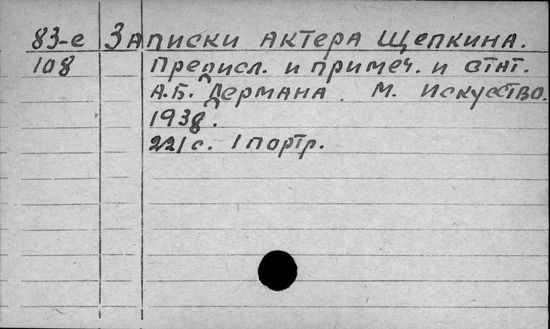 83-е Записки актера Щепкина.
108 Предисл. и примеч. и стат.
А.Б. Дермана. М. Искусство.
1938.
221с. 1 портр.